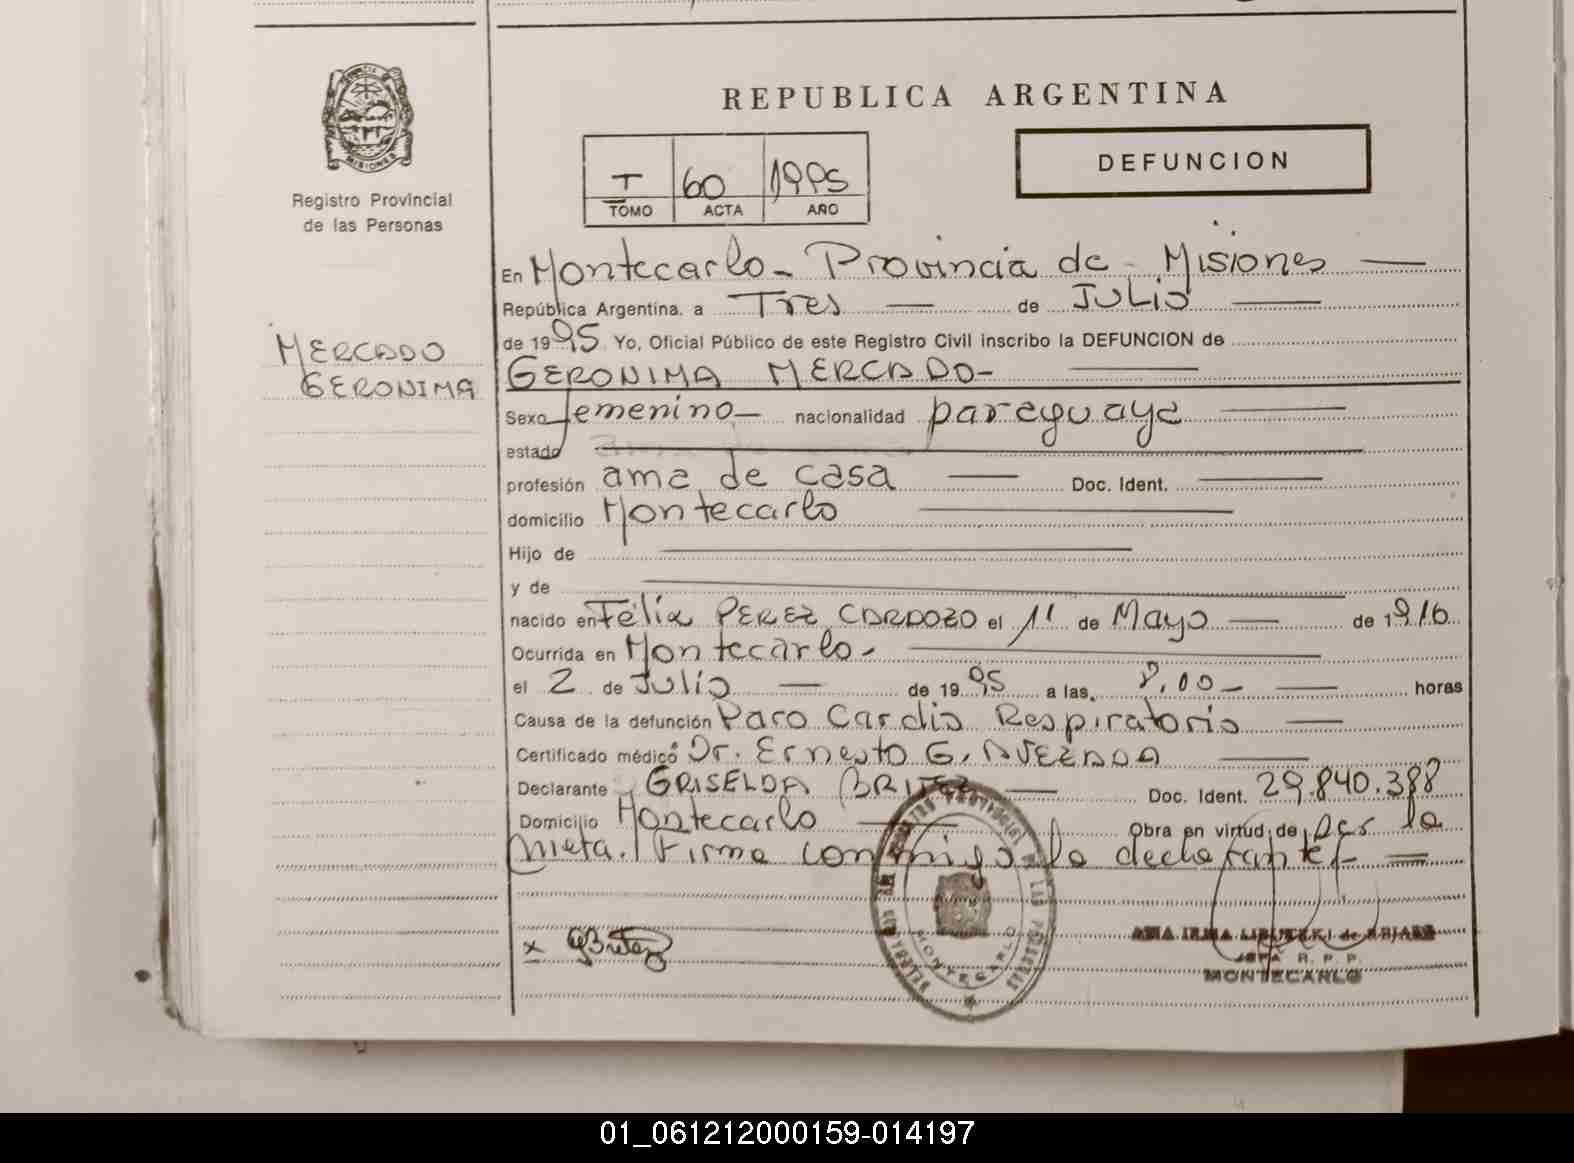 REPUBLICA ARGENTINA
DEFUNCION
T 60 1995
TOMO ACTA AÑO
MISIONES
Registro Provincial
de las Personas
MERCADO
GERONIMA
En Montecarlo - Provincia de Misiones
República Argentina. a Tres de JULIO
de 1995 Yo, Oficial Público de este Registro Civil inscribo la DEFUNCION de
GERONIMA MERCADO-
Sexo femenino nacionalidad paraguaya
estado
profesión ama de casa Doc. Ident.
domicilio Montecarlo
Hijo de
y de
nacido en Félix PEREZ CARDOZO el 11 de Mayo de 1916
Ocurrida en Montecarlo-
el 2 de Julio de 1995 a las 8,00 horas
Causa de la defunción Paro Cardio Respiratorio
Certificado médico Dr. Ernesto G. AVEZADA
Declarante GRISELDA BRITEZ Doc. Ident. 29.840.388
Domicilio Montecarlo Obra en virtud de ser la
nieta. Firma conmigo la declarante-
x GBritez
REGISTRO PROVINCIAL DE LAS PERSONAS
MONTECARLO
ANA IRMA de
JEFA R. P. P.
MONTECARLO
01_061212000159-014197